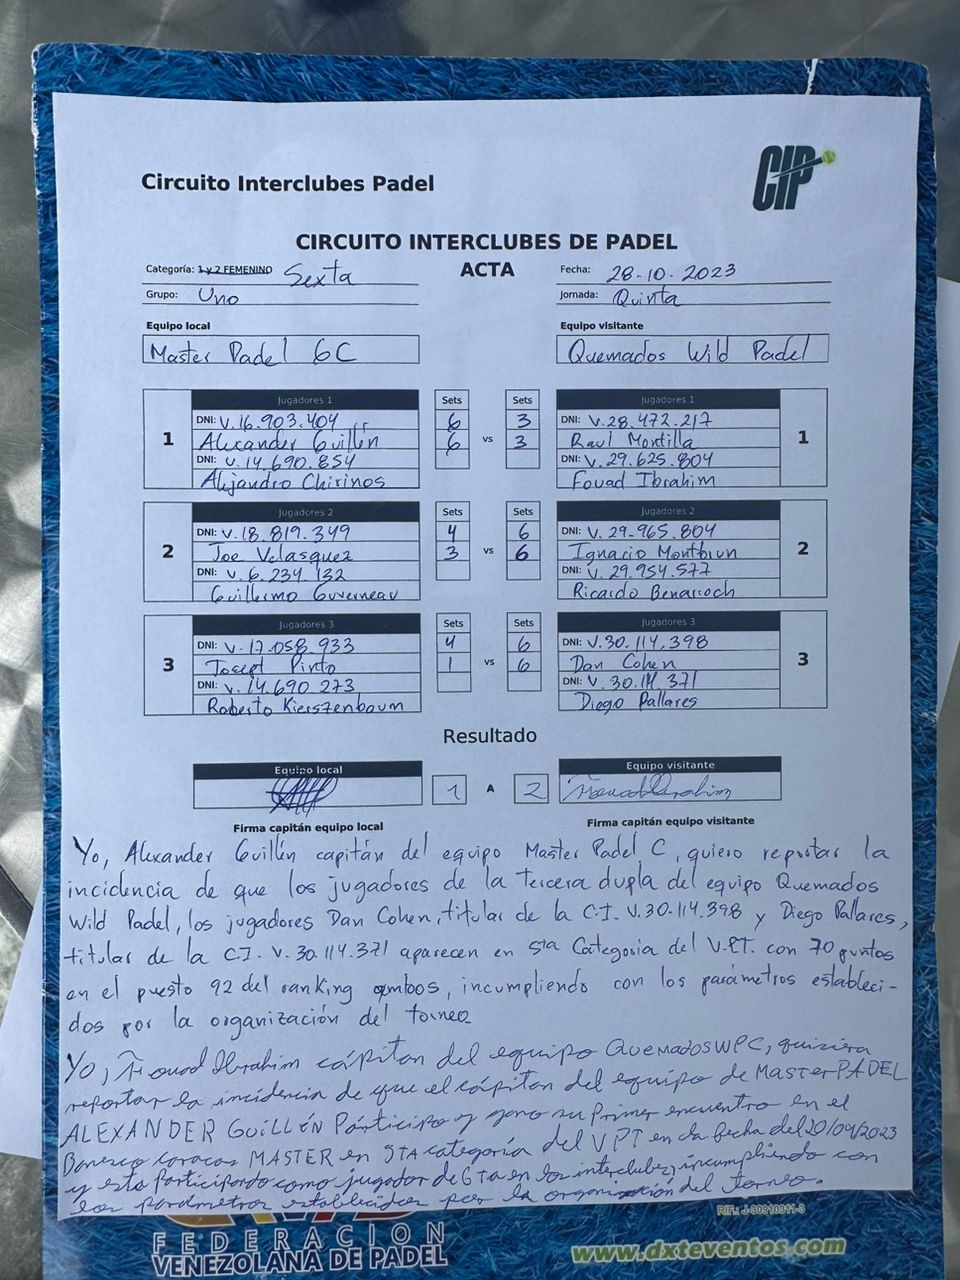 Circuito Interclubes Padel
CIP
CIRCUITO INTERCLUBES DE PADEL
ACTA
Categoría: 1 y 2 FEMENINO Sexta
Fecha: 28-10-2023
Grupo: Uno
Jornada: Quinta
Equipo local
Equipo visitante
Master Padel 6C
Quemados Wild Padel
Jugadores 1 Sets Sets Jugadores 1
DNI: V.16.903.404 6 3 DNI: V.28.472.217
1 Alexander Guillén 6 vs 3 Raul Montilla 1
DNI: V.14.690.854 DNI: V.29.625.804
Alejandro Chirinos Fouad Ibrahim
Jugadores 2 Sets Sets Jugadores 2
DNI: V.18.819.349 4 6 DNI: V.29.965.804
2 Joe Velasquez 3 vs 6 Ignacio Montbrun 2
DNI: V.6.234.132 DNI: V.29.954.577
Guillermo Guverneau Ricardo Benarroch
Jugadores 3 Sets Sets Jugadores 3
DNI: V.17.058.933 4 6 DNI: V.30.114.398
3 Josept Pinto 1 vs 6 Dan Cohen 3
DNI: V.14.690.273 DNI: V.30.114.371
Roberto Kierszenbaum Diego Pallares
Resultado
Equipo local Equipo visitante
1 A 2 Fouad Ibrahim
Firma capitán equipo local Firma capitán equipo visitante
Yo, Alexander Guillén capitán del equipo Master Padel C, quiero reportar la
incidencia de que los jugadores de la tercera dupla del equipo Quemados
Wild Padel, los jugadores Dan Cohen, titular de la C.I. V.30.114.398 y Diego Pallares,
titular de la C.I. V.30.114.371 aparecen en 5ta Categoria del V.P.T. con 70 puntos
en el puesto 92 del ranking ambos, incumpliendo con los parámetros estableci-
dos por la organización del torneo
Yo, Fouad Ibrahim cápitan del equipo QUEMADOSWPC, quisiera
reportar la incidencia de que el cápitan del equipo de MASTERPADEL
ALEXANDER GUILLÉN Párticipo y gano su primer encuentro en el
Banesco caracas MASTER en 5TA categoría del VPT en la fecha del 20/09/2023
y esta Participando como jugador de 6TA en los interclubes, incumpliendo con
los parámetros establecidos por la organización del torneo.
RIF.: J-30910911-3
FEDERACION
VENEZOLANA DE PADEL
www.dxteventos.com